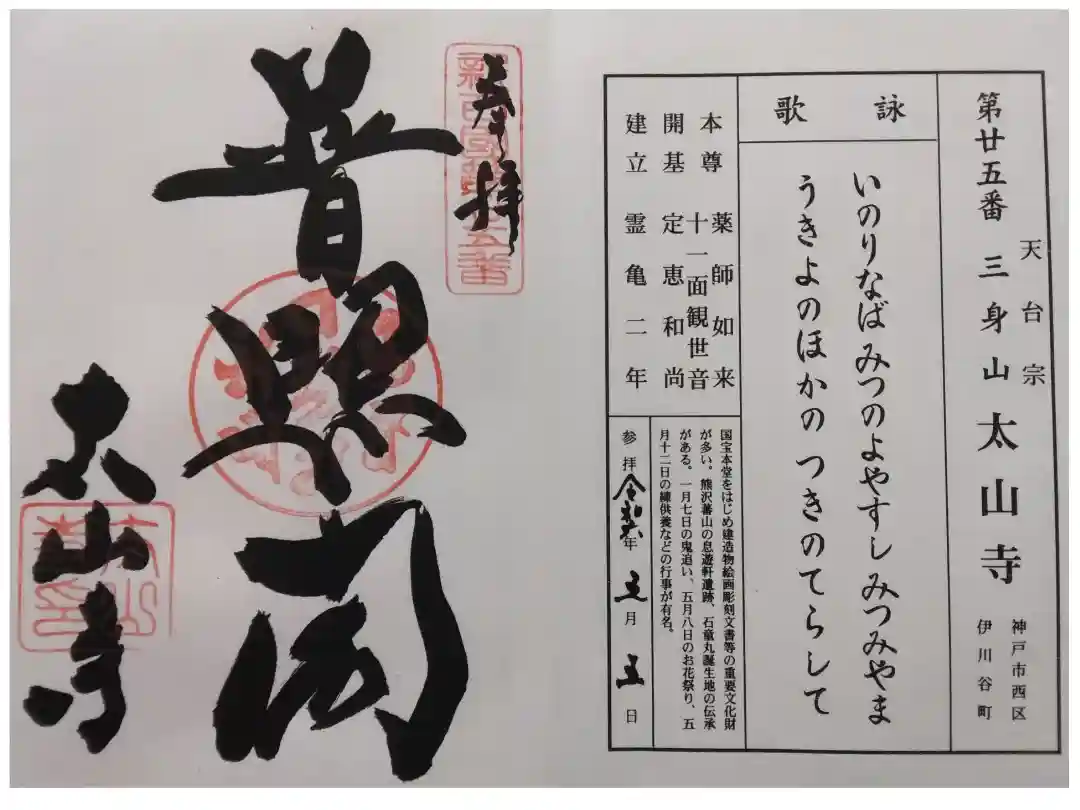 天台宗
第廿五番 三身山 太山寺
神戸市西区
伊川谷町
詠歌
いのりなば みつのよやすし みつみやま
うきよのほかの つきのてらして
本尊 薬師如来
十一面観世音
開基 定恵和尚
建立 霊亀二年
国宝本堂をはじめ建造物絵画彫刻文書等の重要文化財
が多い。熊沢蕃山の息遊軒遺跡、石童丸誕生地の伝承
がある。一月七日の鬼追い、五月八日のお花祭り、五
月十二日の練供養などの行事が有名。
参拝 令和六年 五月 五日
奉拝
普照閣
太山寺